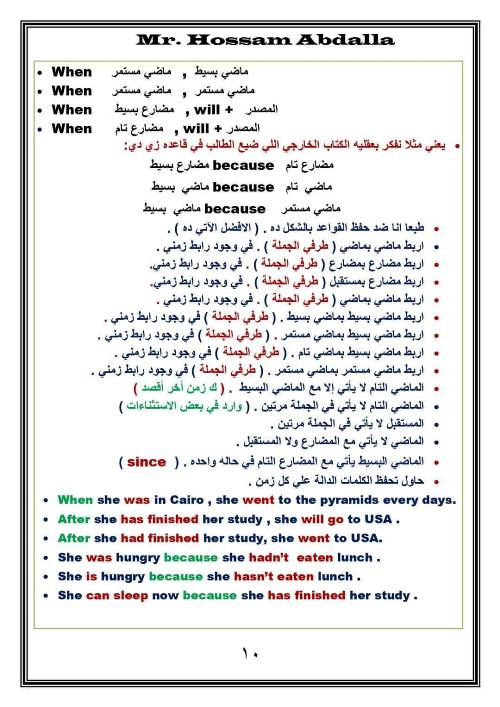 Mr. Hossam Abdalla
• When ماضي مستمر , ماضي بسيط
• When ماضي مستمر , ماضي مستمر
• When مضارع بسيط , will + المصدر
• When مضارع تام , will + المصدر
• يعني مثلا نفكر بعقليه الكتاب الخارجي اللي ضيع الطالب في قاعده زي دي:
مضارع تام because مضارع بسيط
ماضي تام because ماضي بسيط
ماضي مستمر because ماضي بسيط
• طبعا انا ضد حفظ القواعد بالشكل ده . ( الافضل الآتي ده ) .
• اربط ماضي بماضي ( طرفي الجملة ) . في وجود رابط زمني .
• اربط مضارع بمضارع ( طرفي الجملة ) . في وجود رابط زمني.
• اربط مضارع بمستقبل ( طرفي الجملة ) . في وجود رابط زمني.
• اربط ماضي بماضي ( طرفي الجملة ) . في وجود رابط زمني .
• اربط ماضي بسيط بماضي بسيط . ( طرفي الجملة ) في وجود رابط زمني .
• اربط ماضي بسيط بماضي مستمر . ( طرفي الجملة ) في وجود رابط زمني .
• اربط ماضي بسيط بماضي تام . ( طرفي الجملة ) في وجود رابط زمني .
• اربط ماضي مستمر بماضي مستمر . ( طرفي الجملة ) في وجود رابط زمني .
• الماضي التام لا يأتي إلا مع الماضي البسيط . ( ك زمن أخر أقصد )
• الماضي التام لا يأتي في الجملة مرتين . ( وارد في بعض الاستثناءات )
• المستقبل لا يأتي في الجملة مرتين .
• الماضي لا يأتي مع المضارع ولا المستقبل .
• الماضي البسيط يأتي مع المضارع التام في حاله واحده . ( since )
• حاول تحفظ الكلمات الدالة علي كل زمن .
• When she was in Cairo , she went to the pyramids every days.
• After she has finished her study , she will go to USA .
• After she had finished her study, she went to USA.
• She was hungry because she hadn't eaten lunch .
• She is hungry because she hasn't eaten lunch .
• She can sleep now because she has finished her study .
١٠